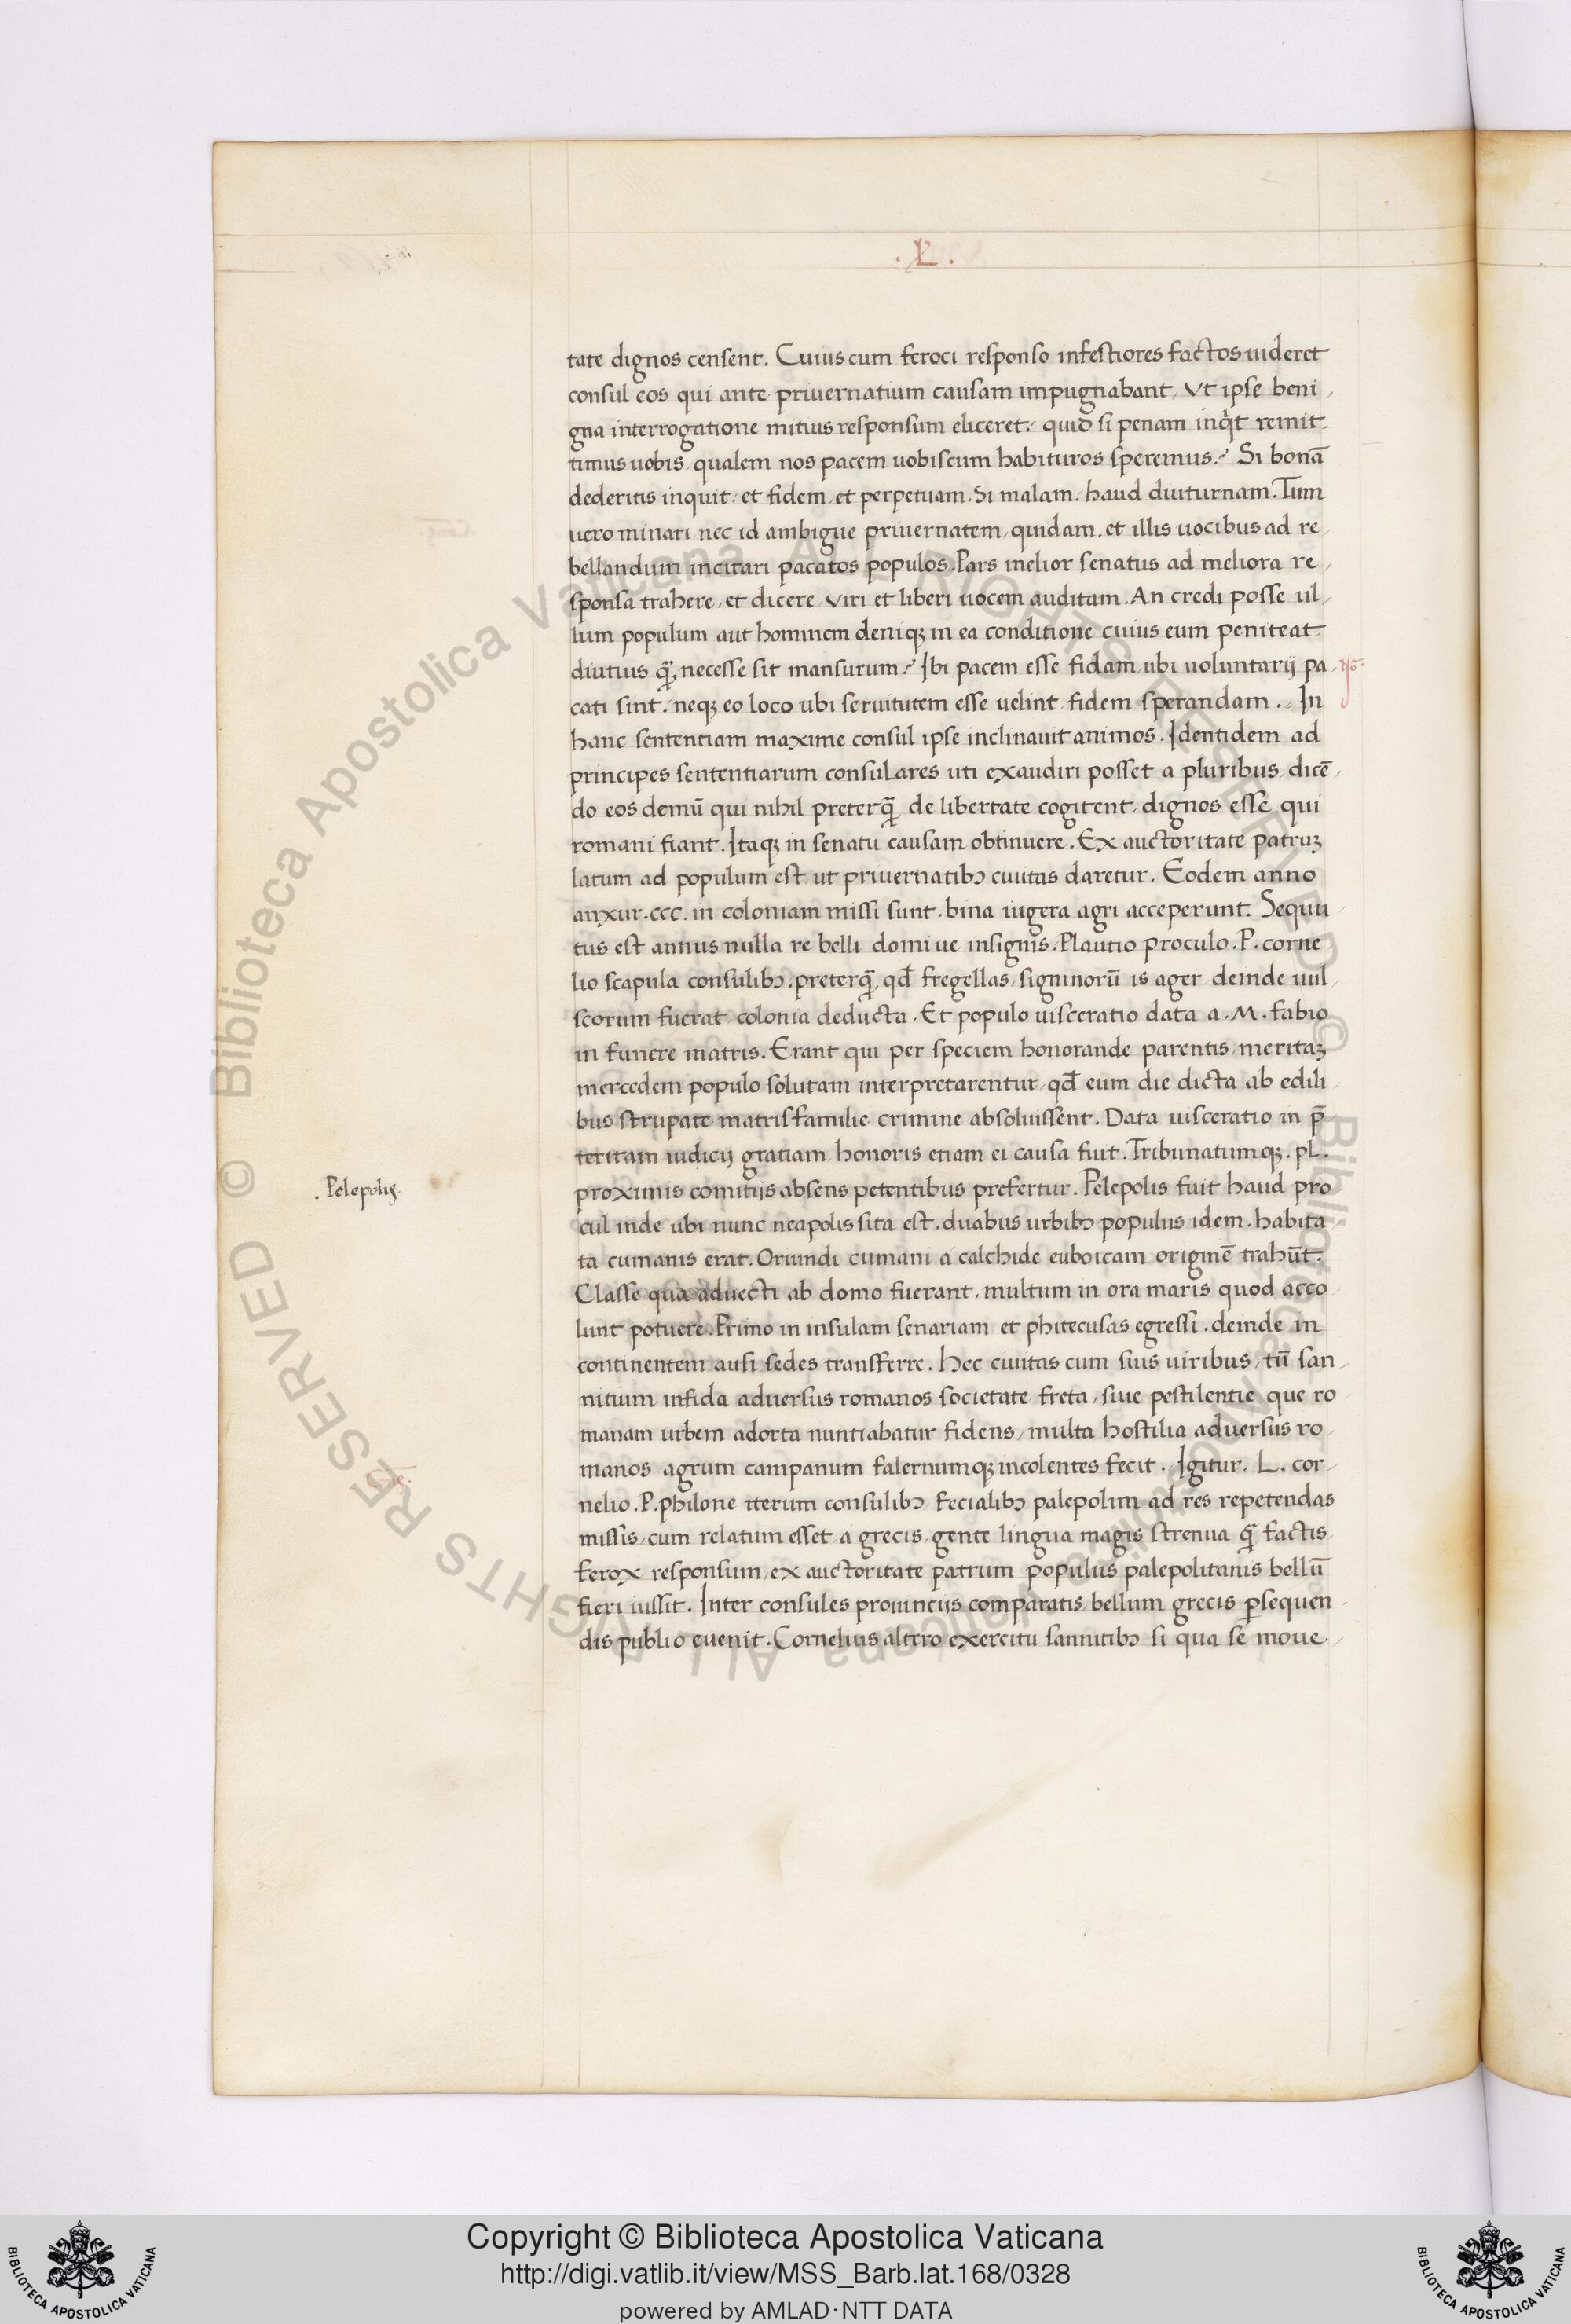 .L.
tate dignos censent. Cuius cum feroci responso infestiores factos uideret
consul eos qui ante priuernatium causam impugnabant, Vt ipse beni
gna interrogatione mitius responsum eliceret. quid si penam inq̇t remit
timus uobis, qualem nos pacem uobiscum habituros speremus? Si bonā
dederitis inquit, et fidem, et perpetuam. Si malam. haud diuturnam. Tum
uero minari nec id ambigue priuernatem, quidam. et illis uocibus ad re
bellandum incitari pacatos populos. Pars melior senatus ad meliora re
sponsa trahere, et dicere viri et liberi uocem auditam. An credi posse ul
lum populum aut hominem deniqꝫ in ea conditione cuius eum peniteat
diutius qᷓ, necesse sit mansurum? Ibi pacem esse fidam ubi uoluntarij pa
No.
cati sint. neqꝫ eo loco ubi seruitutem esse uelint fidem sperandam. In
hanc sententiam maxime consul ipse inclinauit animos. Identidem ad
principes sententiarum consulares uti exaudiri posset a pluribus, dicē
do eos demū qui nihil preterqᷓ de libertate cogitent, dignos esse qui
romani fiant. Itaqꝫ in senatu causam obtinuere. Ex auctoritate patruꝫ
latum ad populum est ut priuernatibꝰ ciuitas daretur. Eodem anno
anxur. ccc. in coloniam missi sunt. bina iugera agri acceperunt. Sequu
tus est annus nulla re belli domi ue insignis. Plautio proculo. P. corne
lio scapula consulibꝰ. preterqᷓ, qd̄ fregellas, signinorū is ager deinde uul
scorum fuerat colonia deducta. Et populo uisceratio data a. M. fabio
in funere matris. Erant qui per speciem honorande parentis meritaꝫ
mercedem populo solutam interpretarentur, qd̄ eum die dicta ab edili
bus strupate matrisfamilie crimine absoluissent. Data uisceratio in p̄
teritam iudicij gratiam honoris etiam ei causa fuit. Tribunatumqꝫ. pL.
proximis comitijs absens petentibus prefertur. Pelepolis fuit haud pro
. Pelepolis.
cul inde ubi nunc neapolis sita est. duabus urbibꝰ populus idem. habita
ta cumanis erat. Oriundi cumani a calchide euboicam originē trahūt.
Classe qua aduecti ab domo fuerant, multum in ora maris quod acco
lunt potuere. Primo in insulam senariam et phitecusas egressi. deinde in
continentem ausi sedes transferre. Hec ciuitas cum suis uiribus, tū san
nitium infida aduersus romanos societate freta, siue pestilentie que ro
manam urbem adorta nuntiabatur fidens, multa hostilia aduersus ro
manos agrum campanum falernumqꝫ incolentes fecit. Igitur. L. cor
nelio. P. philone iterum consulibꝰ fecialibꝰ palepolim ad res repetendas
missis, cum relatum esset a grecis, gente lingua magis strenua qᷓ factis
ferox responsum, ex auctoritate patrum populus palepolitanis bellū
fieri iussit. Inter consules prouincijs comparatis bellum grecis ꝑsequen
dis publio euenit. Cornelius altero exercitu sannitibꝰ si qua se moue
© Biblioteca Apostolica Vaticana ALL RIGHTS RESERVED © Biblioteca Apostolica Vaticana ALL RIGHTS RESERVED
Copyright © Biblioteca Apostolica Vaticana
http://digi.vatlib.it/view/MSS_Barb.lat.168/0328
powered by AMLAD·NTT DATA
BIBLIOTECA APOSTOLICA VATICANA
BIBLIOTECA APOSTOLICA VATICANA